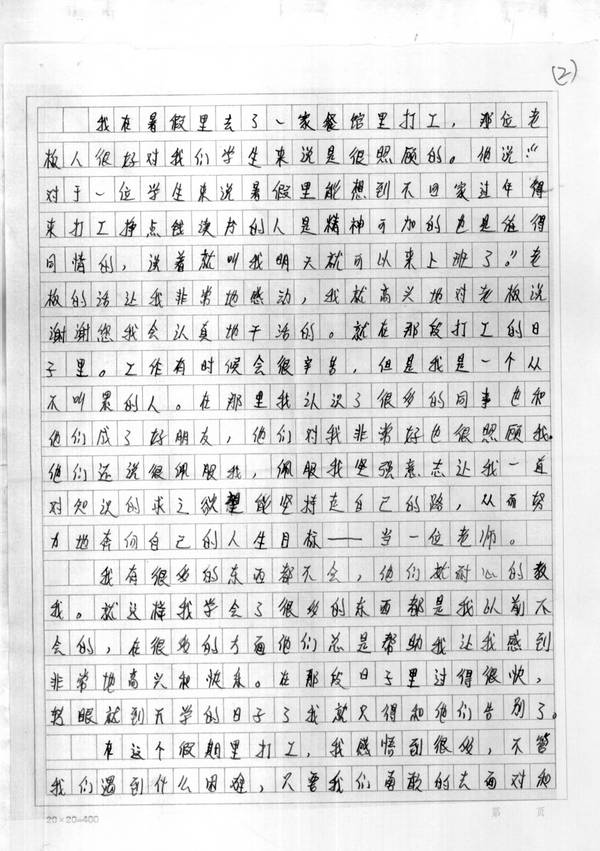 (2)
我在暑假里去了一家餐馆里打工，那位老
板人很好对我们学生来说是很照顾的。他说“
对于一位学生来说暑假里能想到不回家过年得
来打工挣点钱读书的人是精神可加的也是值得
同情的，说着就叫我明天就可以来上班了。”老
板的话让我非常地感动，我就高兴地对老板说
谢谢您我会认真地干活的。就在那段打工的日
子里。工作有时候会很辛苦，但是我是一个从
不叫累的人。在那里我认识了很多的同事也和
他们成了好朋友，他们对我非常好也很照顾我。
他们还说很佩服我，佩服我坚强意志让我一直
对知识的求之欲望能坚持走自己的路，从而努
力地奔向自己的人生目标——当一位老师。
我有很多的东西都不会，他们就耐心的教
我。就这样我学会了很多的东西都是我以前不
会的，在很多的方面他们总是帮助我让我感到
非常地高兴和快乐。在那段日子里过得很快，
转眼就到开学的日子了我就只得和他们告别了。
在这个假期里打工，我感悟到很多，不管
我们遇到什么困难，只要我们勇敢的去面对和
20×20=400
第 页